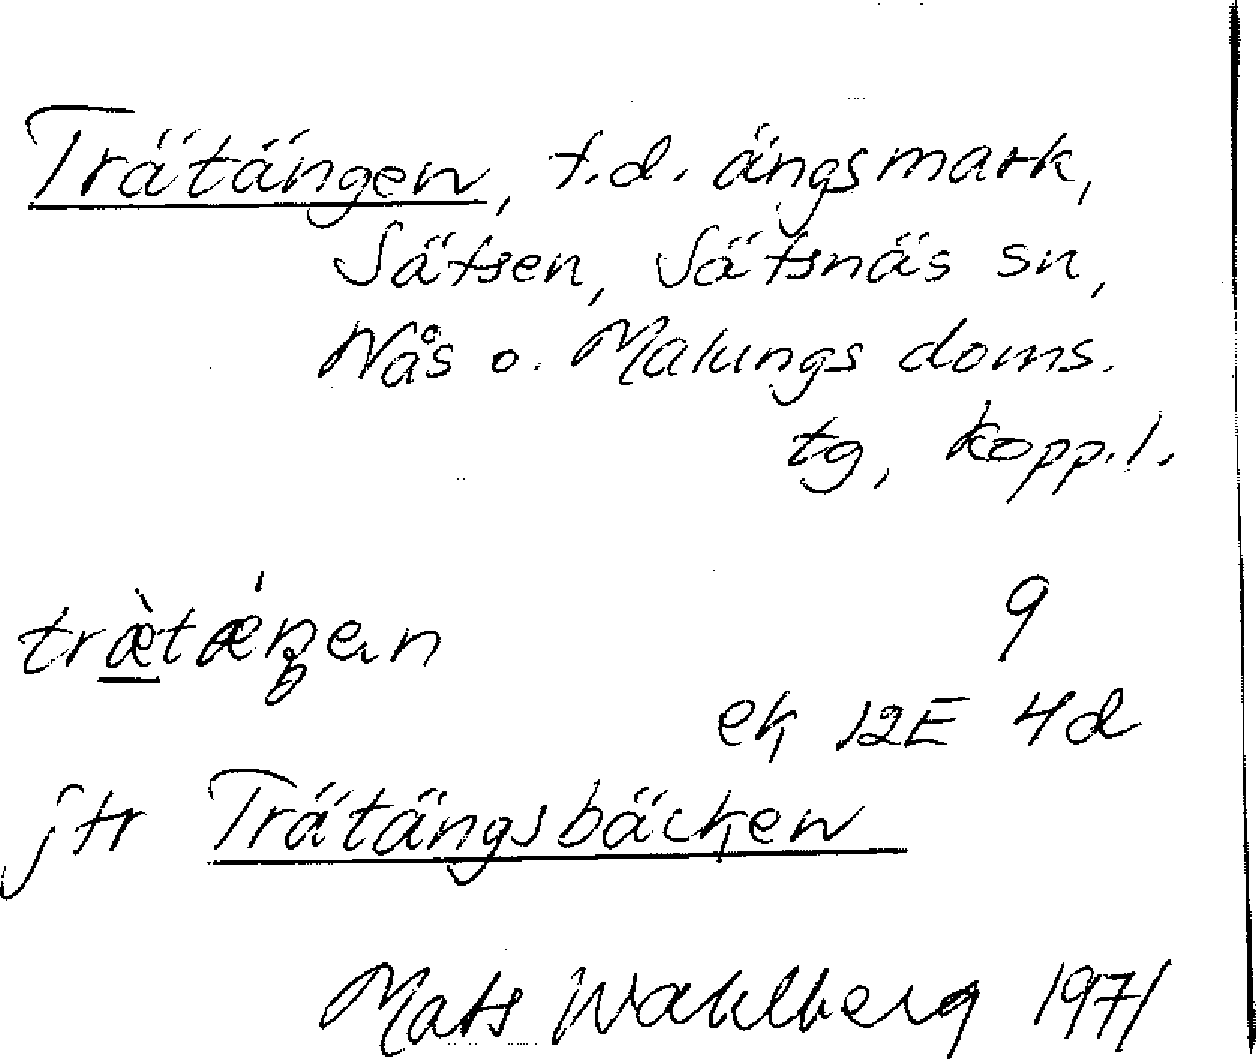 Trätängen, f.d. ängsmark,
Sätsen, Sätsnäs sn,
Nås o. Malungs doms.
tg, Kopp.l.
9
ek 12E 4d
jfr Trätängsbäcken
Mats Wahlberg 1971